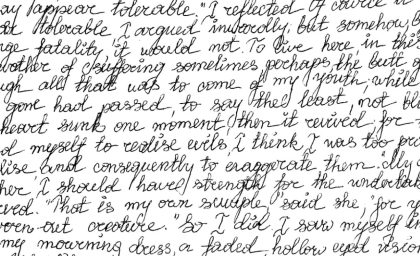 ay appear tolerable." I reflected of course it
at tolerable I argued inwardly, but somehow,
ge fatality, it would not. To live here in this
wother of suffering sometimes perhaps the butt of
ugh all that was to come of my youth, while
gone had passed, to say the least, not bli
heart sunk one moment, then it revived for
d myself to realise evils, I think I was too pro
lise and consequently to exaggerate them. illn
her, I should have strength for the undertak
rved. "That is my own scruple," said she, for ye
worn-out creature. "So I did. I saw myself in
my mourning dress, a faded, hollow eyed visio